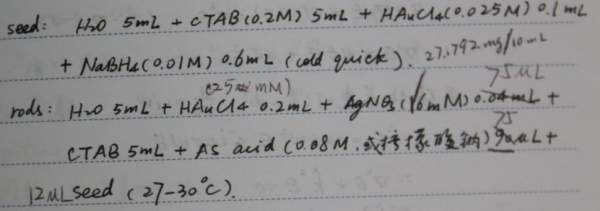 seed: H2O 5mL + CTAB(0.2M) 5mL + HAuCl4(0.025M) 0.1mL
+ NaBH4(0.01M) 0.6mL (cold quick). 27.792mg/10mL
(25 mM) 75μL
rods: H2O 5mL + HAuCl4 0.2mL + AgNO3(16mM) 0.04mL +
75
CTAB 5mL + As acid (0.08M,或柠檬酸钠) 90μL +
12μL seed (27-30°C).